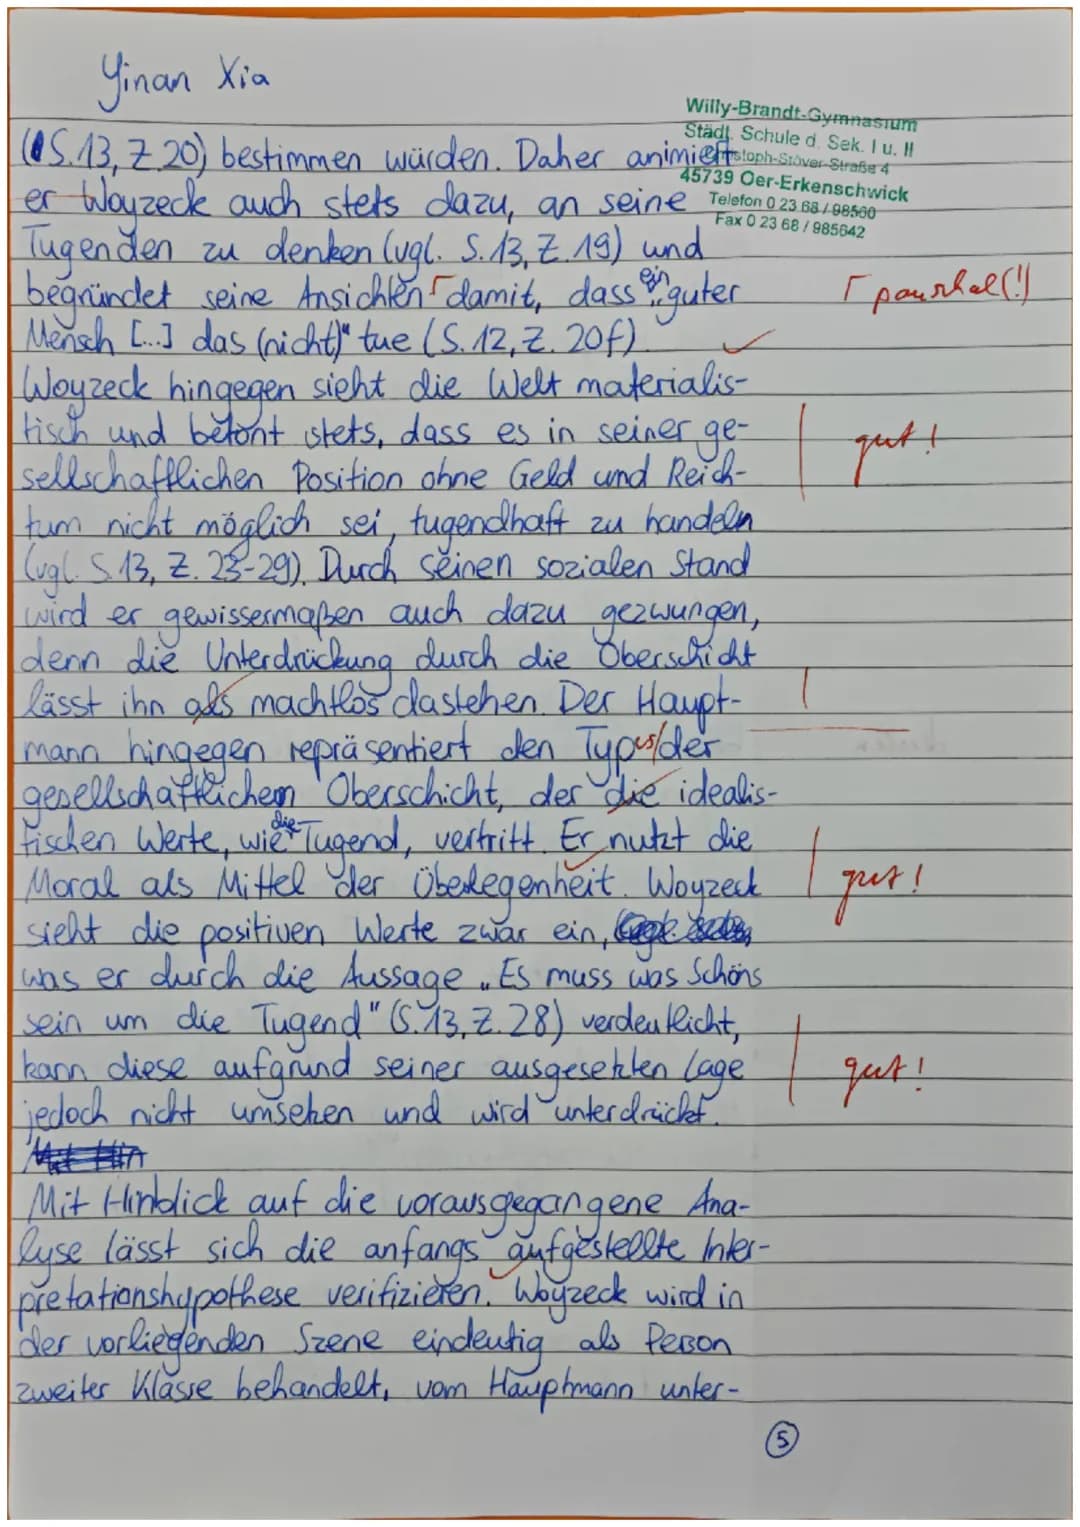 Yinan Xia
Willy-Brandt-Gymnasium
Städt. Schule d. Sek. I u. II
stoph-Stöver-Straße 4
45739 Oer-Erkenschwick
Telefon 0 23 68 / 98560
Fax 0 23 68 / 985642
(S.13, Z.20) bestimmen würden. Daher animiert
er Woyzeck auch stets dazu, an seine
Tugenden zu denken (vgl. S.13, Z.19) und
begründet seine Ansichten damit, dass „ein guter
Γ pauschal (!)
Mensch [...] das (nicht)" tue (S.12, Z.20f)
Woyzeck hingegen sieht die Welt materialis-
tisch und betont stets, dass es in seiner ge-
gut!
sellschaftlichen Position ohne Geld und Reich-
tum nicht möglich sei, tugendhaft zu handeln
(vgl. S.13, Z. 23-29). Durch seinen sozialen Stand
wird er gewissermaßen auch dazu gezwungen,
denn die Unterdrückung durch die Oberschicht
lässt ihn als machtlos dastehen. Der Haupt-
mann hingegen repräsentiert den Typus der
gesellschaftlichen Oberschicht, der die idealis-
tischen Werte, wie die Tugend, vertritt. Er nutzt die
Moral als Mittel der Überlegenheit. Woyzeck
gut!
sieht die positiven Werte zwar ein,
was er durch die Aussage „Es muss was Schöns
sein um die Tugend" (S.13, Z.28) verdeutlicht,
kann diese aufgrund seiner ausgesetzten Lage
gut!
jedoch nicht umsetzen und wird unterdrückt.
Mit Hin
Mit Hinblick auf die vorausgegangene Ana-
lyse lässt sich die anfangs aufgestellte Inter-
pretationshypothese verifizieren. Woyzeck wird in
der vorliegenden Szene eindeutig als Person
zweiter Klasse behandelt, vom Hauptmann unter-
5